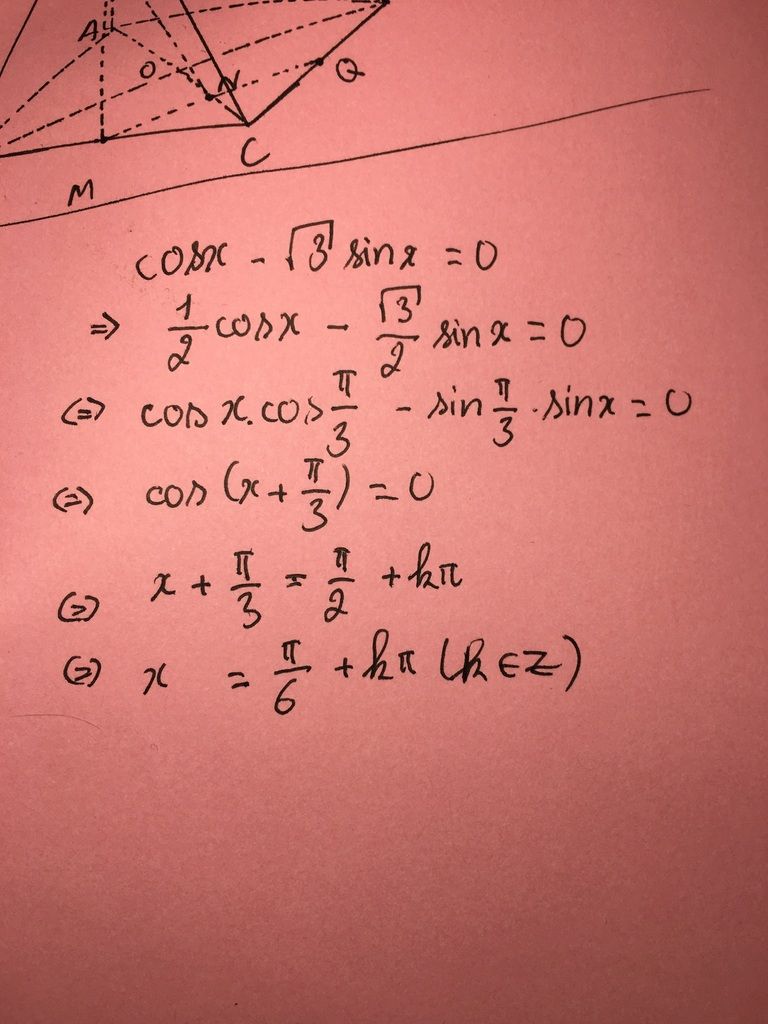 A
O
N
Q
C
M
cosx - √3 sinx = 0
=> 1/2 cosx - √3/2 sinx = 0
(=) cosx.cos π/3 - sin π/3 . sinx = 0
(=) cos(x + π/3) = 0
(=) x + π/3 = π/2 + kπ
(=) x = π/6 + kπ (k ∈ Z)